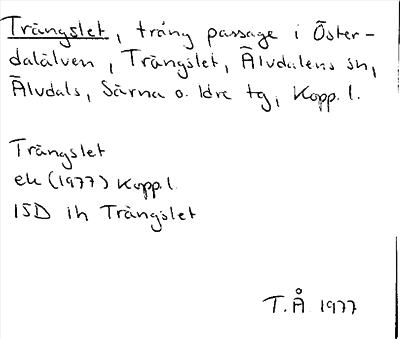 Trängslet, trång passage i Öster-
dalälven, Trängslet, Älvdalens sn,
Älvdals, Särna o. Idre tg, Kopp. l.
Trängslet
ek (1977) Kopp. l.
15D 1h Trängslet
T.Å 1977